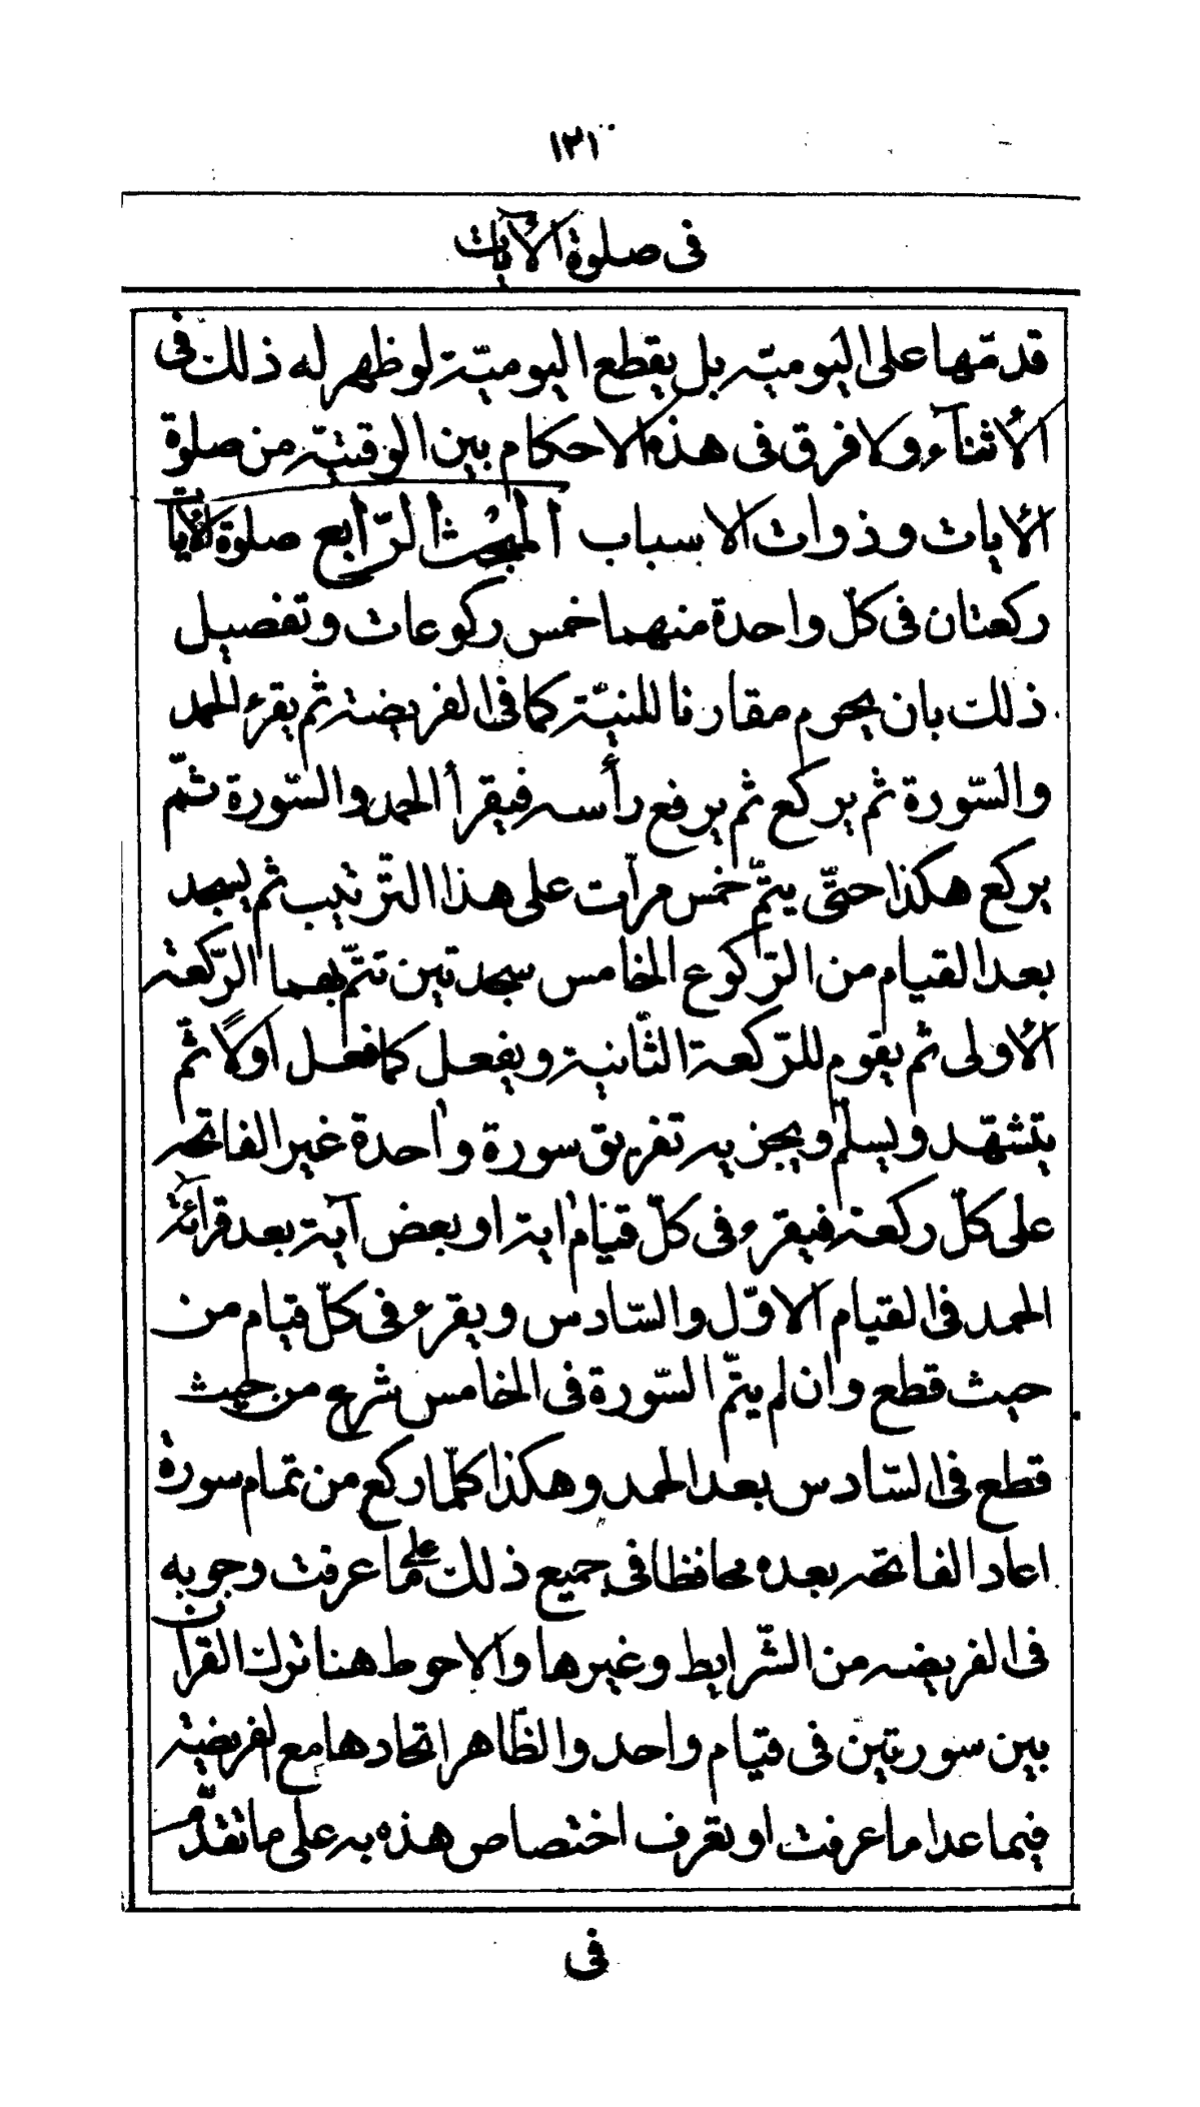 ١٢١
فى صلوة الآيات
قدمّها على اليوميّه بل يقطع اليوميّة لو ظهر له ذلك فى
الأثنآء ولا فرق فى هذه الاحكام بين الوقتيّة من صلوة
الأيات وذوات الاسباب المبحث الرّابع صلوة الأيات
ركعتان فى كلّ واحدة منهما خمس ركوعات وتفصيل
ذلك بان يحرم مقارنا للنيّة كما فى الفريضة ثم يقرء الحمد
والسّورة ثم يركع ثم يرفع رأسه فيقرأ الحمد والسّورة ثمّ
يركع هكذا حتّى يتمّ خمس مرّات على هذا الترّتيب ثم يسجد
بعد القيام من الرّكوع الخامس سجدتين تتمّ بهما الرّكعة
الأولى ثم يقوم للرّكعة الثّانية ويفعل كما فعل اولًا ثمّ
يتشهّد ويسلّم ويجزيه تفريق سورة واحدة غير الفاتحه
على كلّ ركعة فيقرء فى كلّ قيام اية او بعض آية بعد قرآئة
الحمد فى القيام الاوّل والسّادس ويقرء فى كلّ قيام من
حيث قطع وان لم يتمّ السّورة فى الخامس شرع من حيث
قطع فى السّادس بعد الحمد وهكذا كلّما ركع من تمام سورة
اعاد الفاتحه بعده محافظا فى جميع ذلك على ما عرفت وجوبه
فى الفريضه من الشّرايط وغيرها والاحوط هنا ترك القران
بين سورتين فى قيام واحد والظّاهر اتحادها مع الفريضة
فيما عدا ما عرفت او تعرف اختصاص هذه به على ما تقدّم
فى